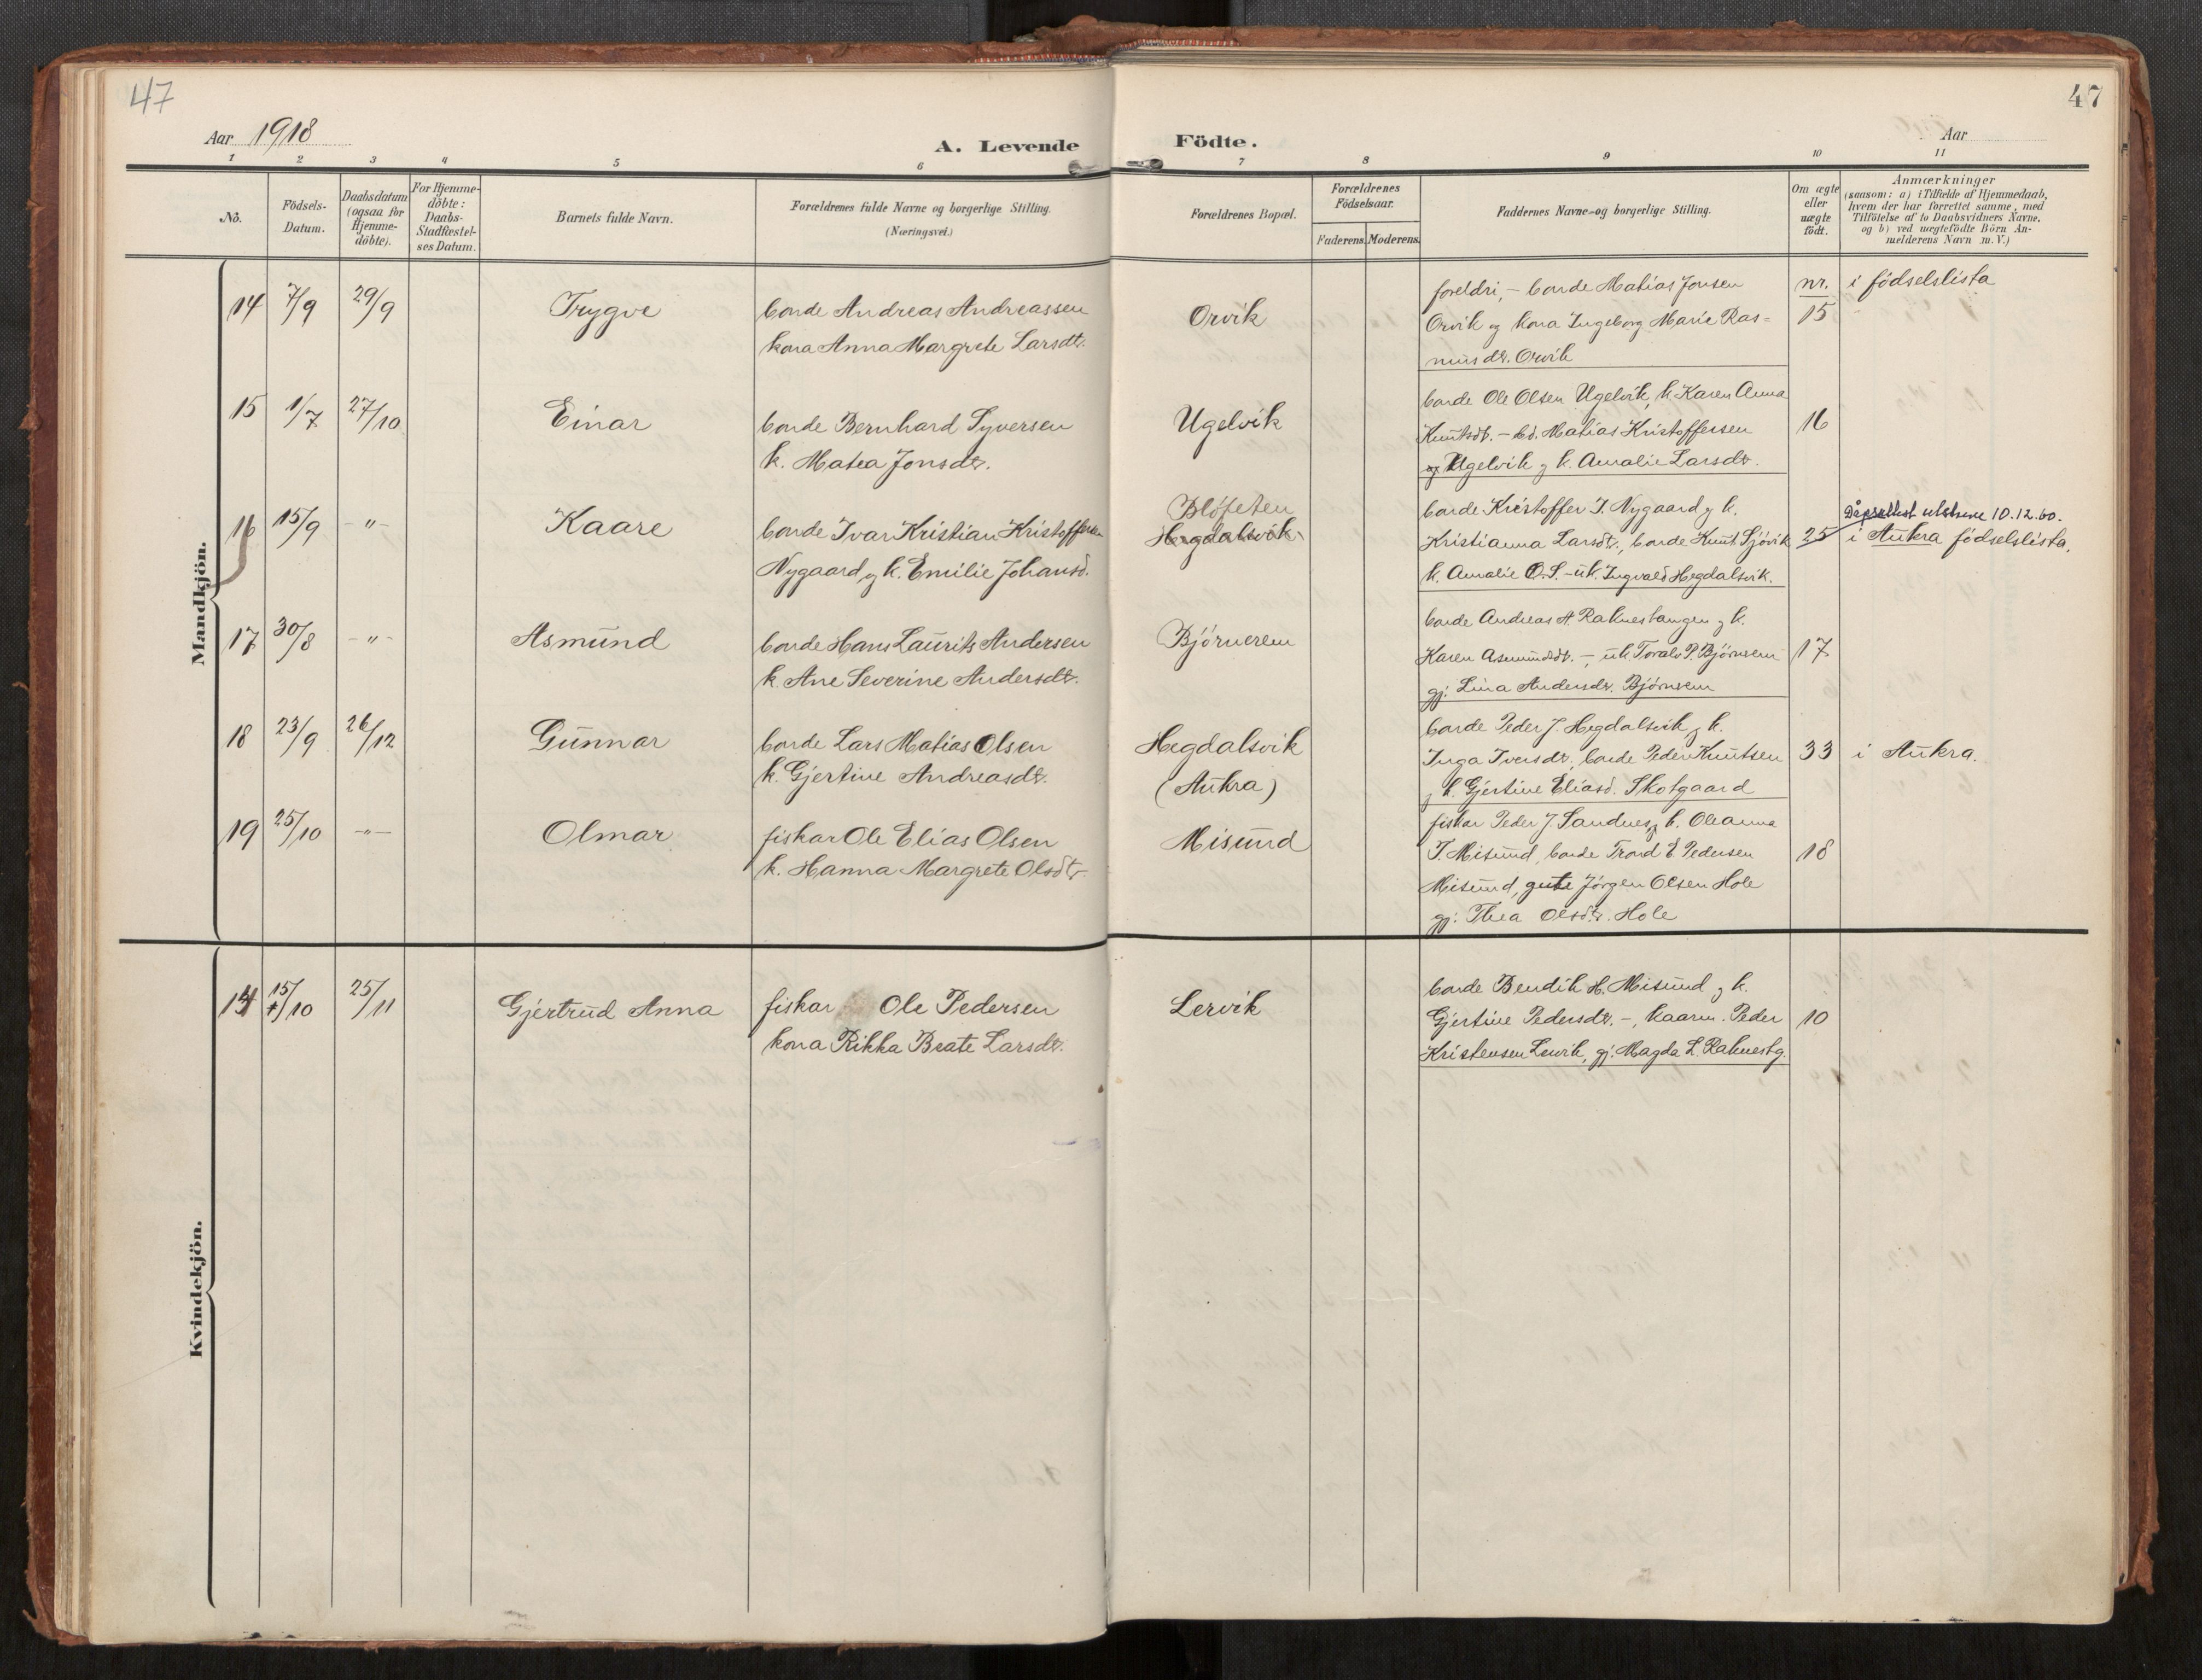 47
47
Aar 1918
A. Levende Födte.
Aar
1 2 3 4 5 6 7 8 9 10 11
No.
Födsels-Datum.
Daabsdatum (ogsaa for Hjemme-döbte).
For Hjemme-döbte: Daabs-Stadfæstel-ses Datum.
Barnets fulde Navn.
Forældrenes fulde Navne og borgerlige Stilling.
(Næringsvei.)
Forældrenes Bopæl.
Forældrenes Födselsaar.
Faderens. Moderens.
Faddernes Navne og borgerlige Stilling.
Om ægte eller uægte födt.
Anmærkninger
(saasom: a) i Tilfælde af Hjemmedaab,
hvem der har forrettet samme, med
Tilföielse af to Daabsvidners Navne,
og b) ved uægtefödte Börn An-
melderens Navn m. V.)
Mandkjön.
14 7/9 29/9 Trygve
bonde Andreas Andreassen
kona Anna Margrete Larsdtr.
Orvik
foreldri, - bonde Matias Jonsen
Orvik og kona Ingeborg Marie Ras=
musdr. Orvik
nr. 15
i födselslista
15 1/7 27/10 Einar
bonde Bernhard Syversen
k. Matea Jonsdtr.
Ugelvik
bonde Ole Olsen Ugelvik, k. Karen Anna
Knutsdt. - bd. Matias Kristoffersen
Ugelvik og k. Amalie Larsdtr.
16
16 15/9 -"- Kaare
bonde Ivar Kristian Kristoffersen
Nygaard og k. Emilie Johansd.
Blöfeten
Hegdalsvik
bonde Kristoffer I. Nygaard og k.
Kristianna Larsdtr., bonde Knut Sjövik
k. Amalie O.S. - uk. Ingvald Hegdalsvik.
25
Dåpsattest utskreve 10.12.60.
i Aukra födselslista.
17 30/8 -"- Asmund
bonde Hans Laurits Andersen
k. Ane Severine Andersdtr.
Björnerem
bonde Andreas A. Raknestangen og k.
Karen Asmundsdt. -, uk Toralv P. Björnerem
gj. Lina Andersdr. Björnerem
17
18 23/9 26/12 Gunnar
bonde Lars Matias Olsen
k. Gjertine Andreasdt.
Hegdalsvik
(Aukra)
bonde Peder J. Hegdalsvik og k.
Inga Iversdr. bonde Peder Knutsen
og k. Gjertine Eliasd. Skotgaard
33 i Aukra.
19 25/10 -"- Olmar
fiskar Ole Elias Olsen
k. Hanna Margrete Olsdtr
Misund
fiskar Peder J. Sandnes, og k. Oleanna
T. Misund, bonde Trond E. Pedersen
Misund, gute Jörgen Olsen Hole
gj: Thea Olsdtr. Hole
18
Kvindekjön.
14 15/10 25/11 Gjertrud Anna
fiskar Ole Pedersen
kona Rikka Beate Larsdr.
Lervik
bonde Bendik H. Misund og k.
Gjertine Pedersdr. -, kaarm. Peder
Kristensen Lervik, gj. Magda L. Raknestg.
10